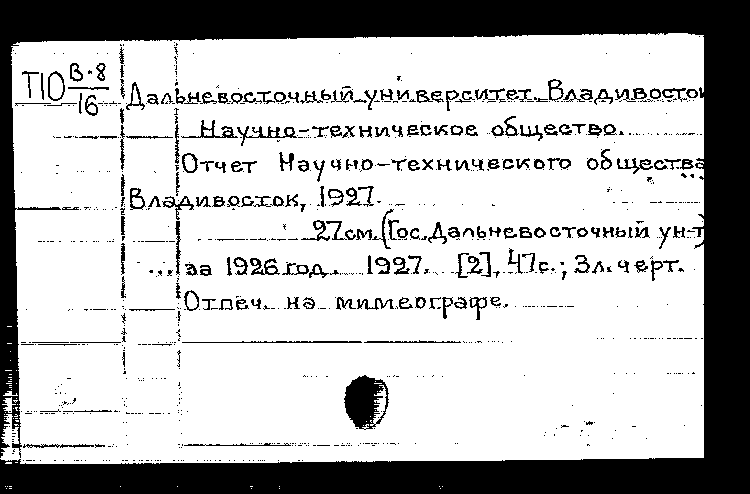 П10 В.8/16
Дальневосточный университет. Владивосток
Научно-техническое общество.
Отчет Научно-технического общества
...
Владивосток, 1927.
27см. (Гос. Дальневосточный ун-т)
... за 1926 год. 1927. [2], 47с.; 3л. черт.
Отпеч. на мимеографе.